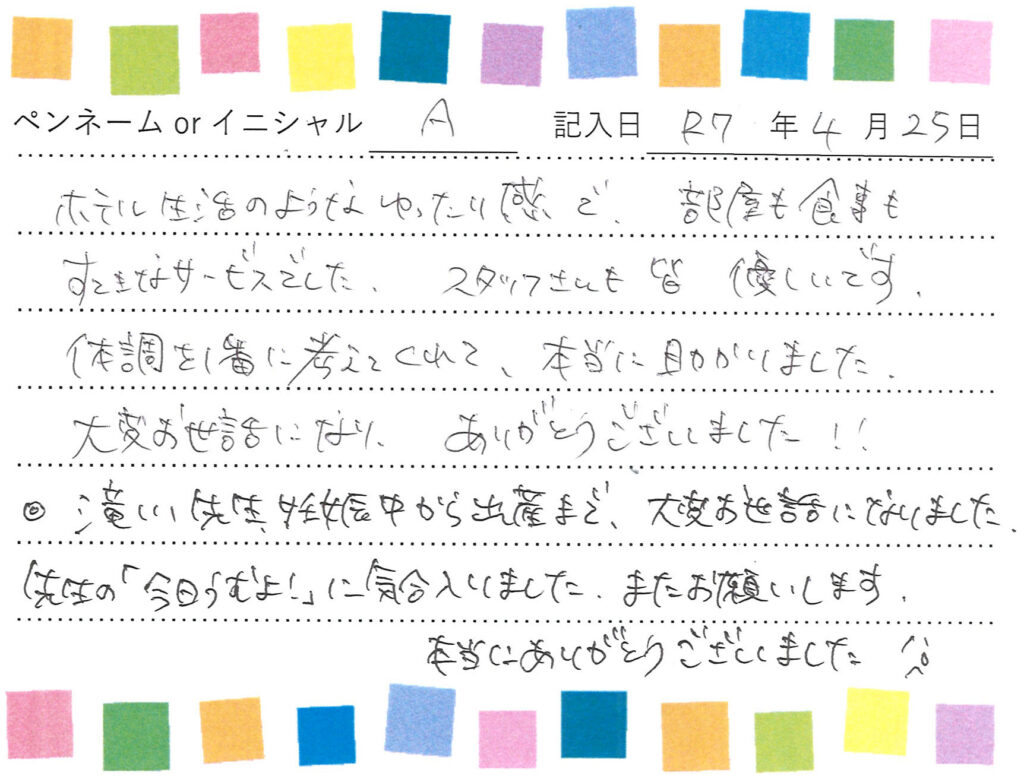 ペンネーム or イニシャル A 記入日 R7 年 4 月 25 日
ホテル生活のようなゆったり感で、部屋も食事も
すてきなサービスでした。スタッフさんも皆優しいです。
体調を1番に考えてくれて、本当に助かりました。
大変お世話になり、ありがとうございました!!
◎ 滝川先生、妊娠中から出産まで、大変お世話になりました。
先生の「今日うむよ!」に気合入りました。またお願いします。
本当にありがとうございました